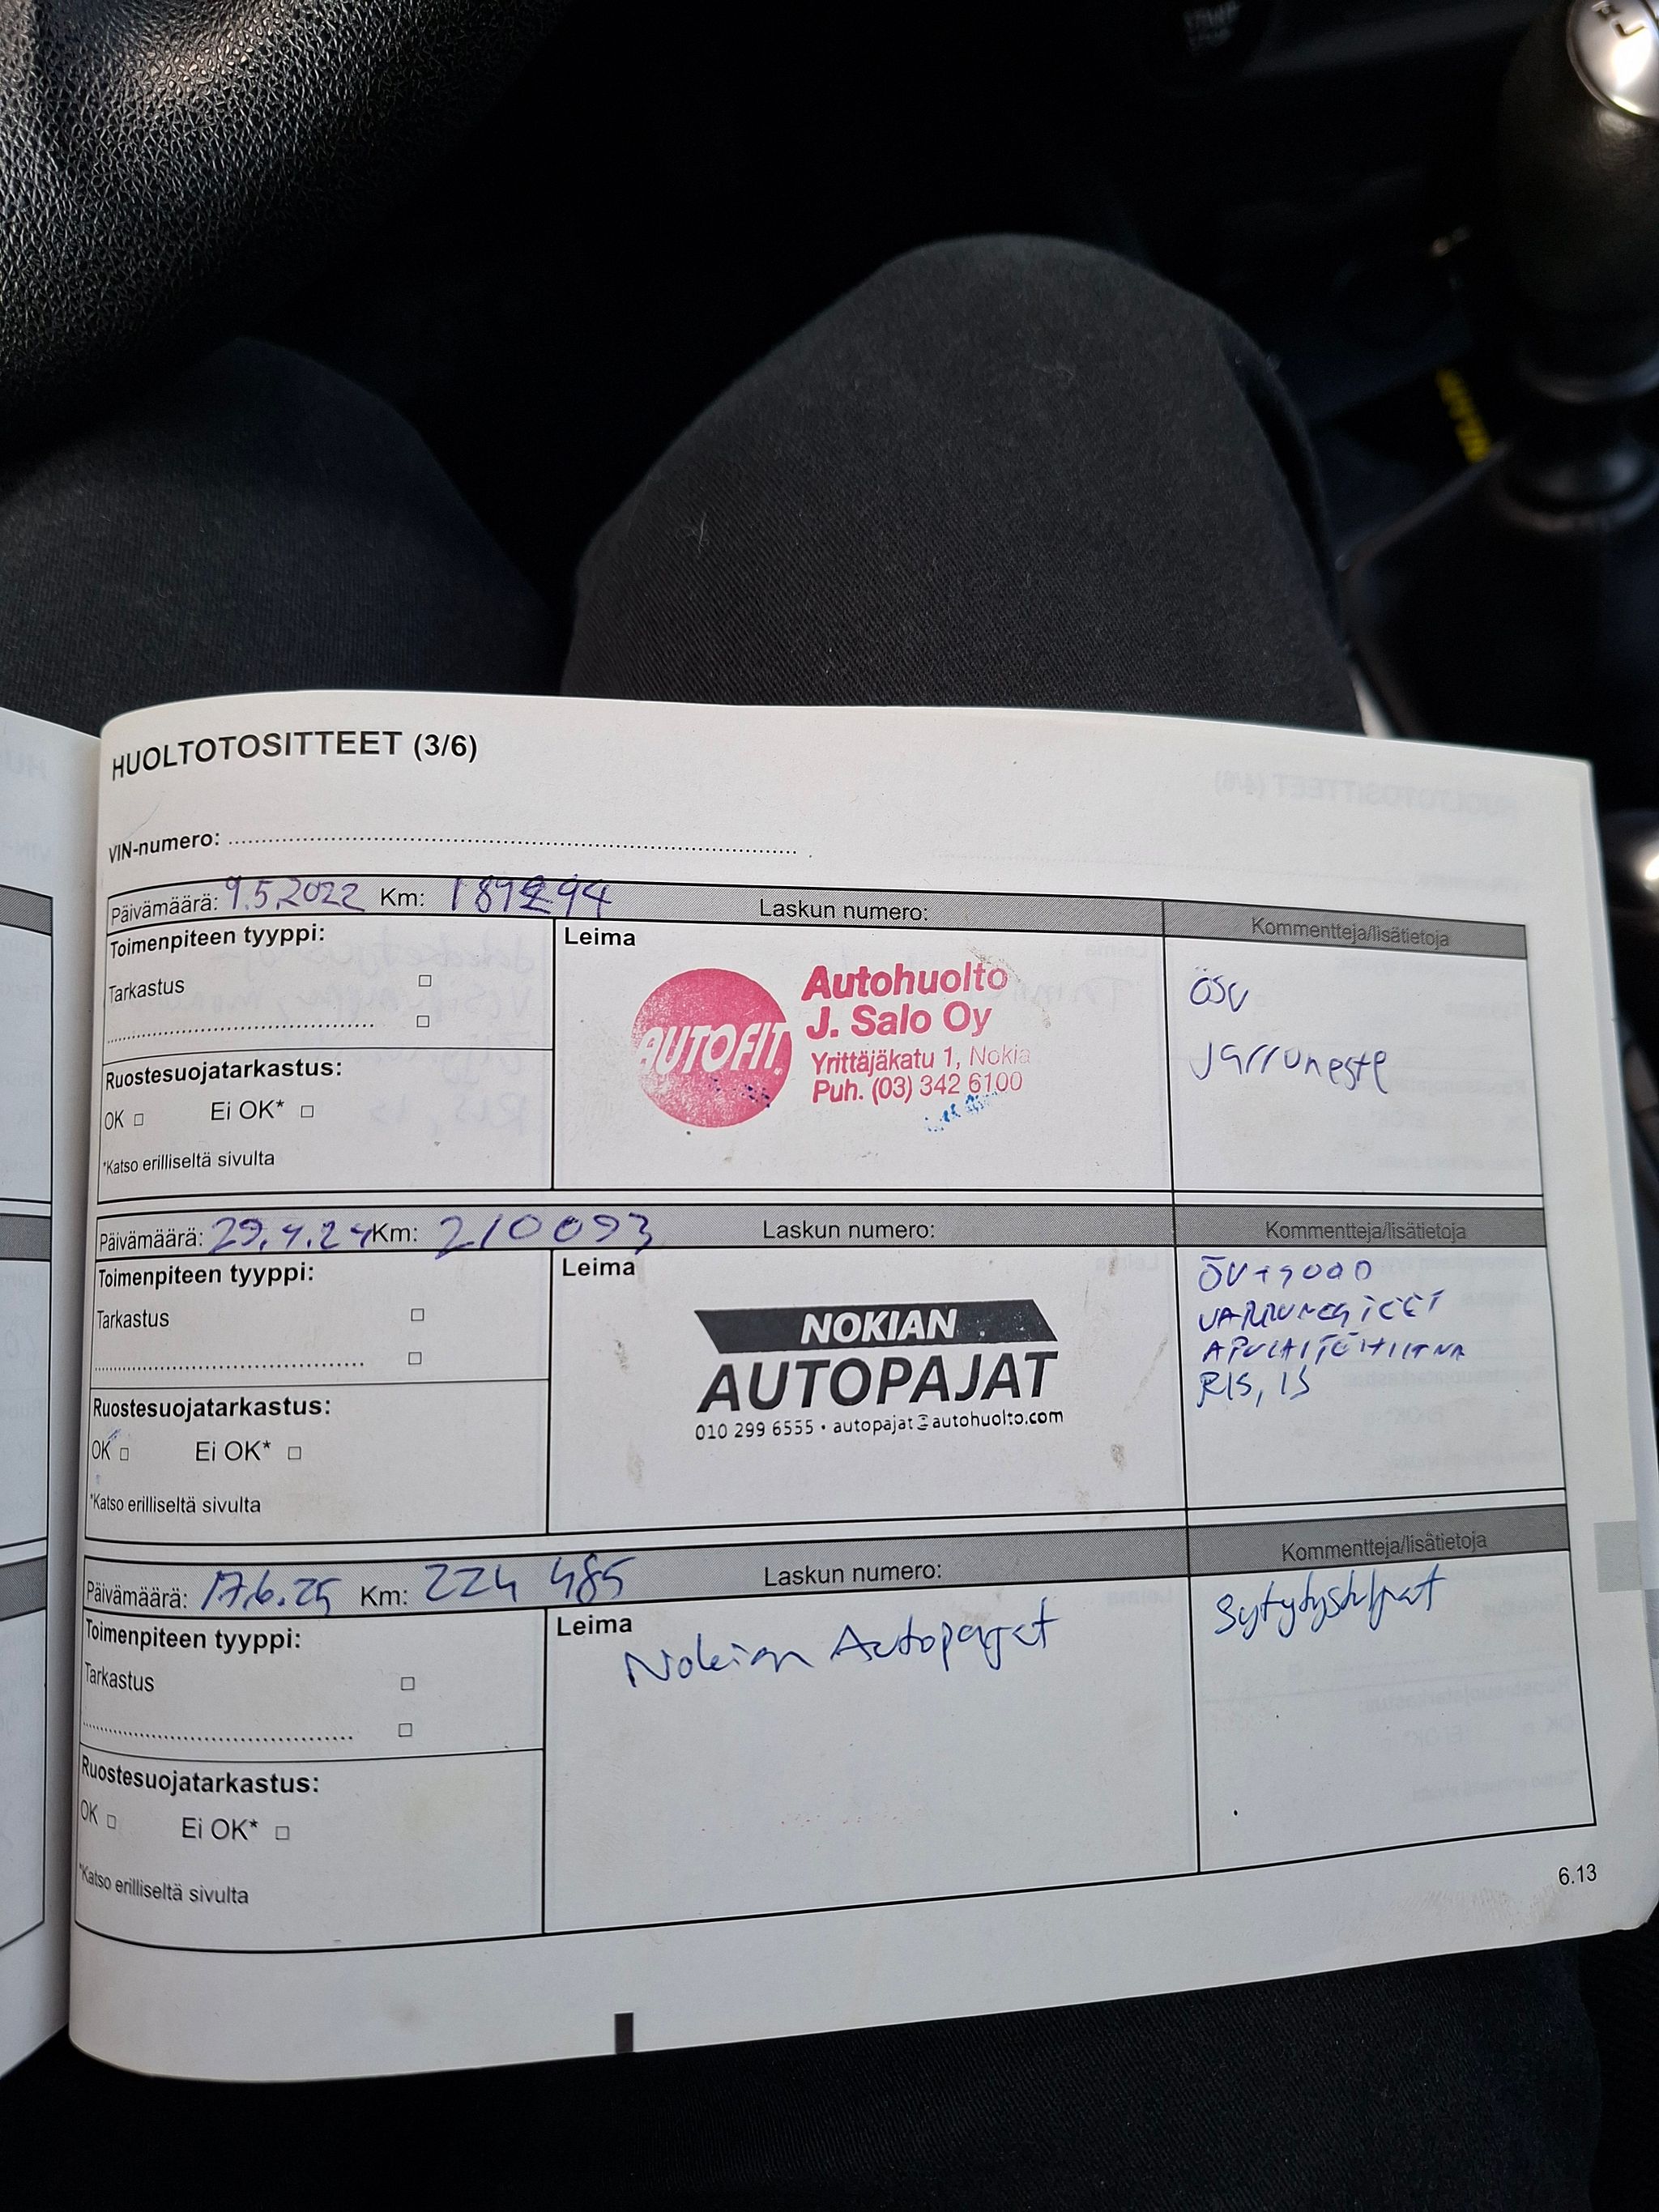 HUOLTOTOSITTEET (3/6)
VIN-numero:
Päivämäärä: 9.5.2022 Km: Laskun numero: Kommentteja/lisätietoja
Toimenpiteen tyyppi:
Tarkastus
Ruostesuojatarkastus:
OK Ei OK*
*Katso erilliseltä sivulta
Leima
AUTOFIT
Autohuolto
J. Salo Oy
Yrittäjäkatu 1, Nokia
Puh. (03) 342 6100
ÖSV
Jarruneste
Päivämäärä: 29.4.24 Km: 210093 Laskun numero: Kommentteja/lisätietoja
Toimenpiteen tyyppi:
Tarkastus
Ruostesuojatarkastus:
OK Ei OK*
*Katso erilliseltä sivulta
Leima
NOKIAN
AUTOPAJAT
010 299 6555 • autopajat@autohuolto.com
RIS, IS
Päivämäärä: 17.6.25 Km: 224 485 Laskun numero: Kommentteja/lisätietoja
Toimenpiteen tyyppi:
Tarkastus
Ruostesuojatarkastus:
OK Ei OK*
*Katso erilliseltä sivulta
Leima
Nokian Autopajat
Sytytystulpat
6.13